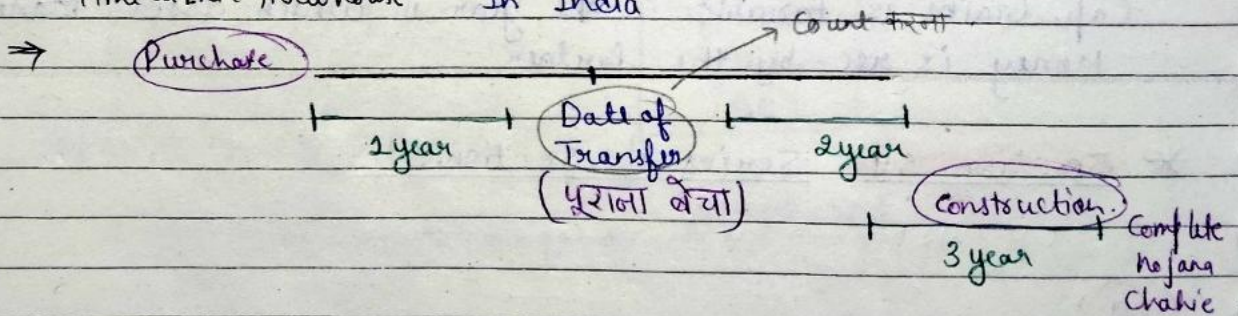 In India
Count करना
⇒ Purchase
1 year
Date of
Transfer
(पूराना बेचा)
2 year
Construction.
3 year
Complete
ho jana
Chahie